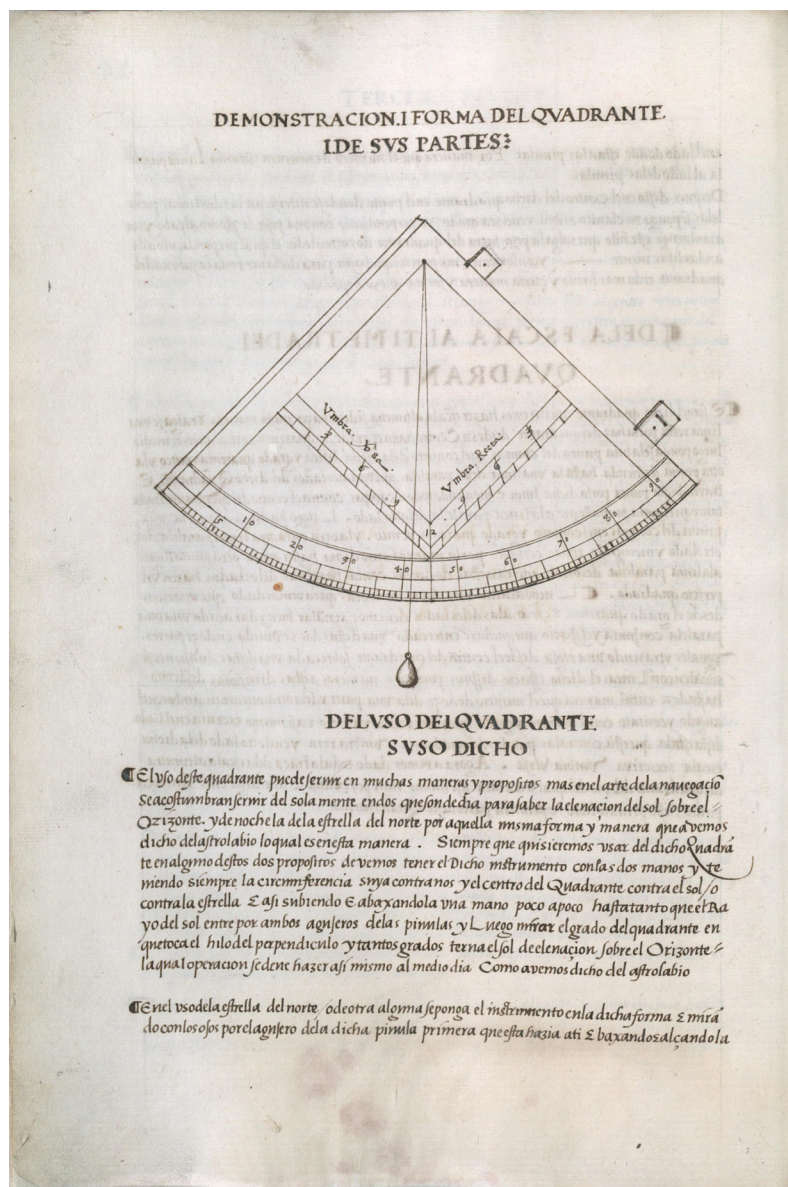 DEMONSTRACION.I FORMA DEL QVADRANTE.
I.DE SVS PARTES
Vmbra.
3
6
9
12
Vmbra Recta
3
6
9
5
10
20
30
40
50
60
70
80
90
DEL VSO DEL QVADRANTE
SVSO DICHO
El vso deste quadrante puede seruir en muchas maneras y propositos mas en el arte de la nauegaçiō
Se acostumbran seruir del sola mente en dos que son de dia para saber la eleuacion del sol sobre el
Orizonte. y de noche la de la estrella del norte por aquella misma forma y manera que avemos
dicho del astrolabio lo qual es en esta manera . Siempre que quisieremos vsar del dicho Quadrā
te en alguno destos dos propositos devemos tener el Dicho instrumento con las dos manos y te
niendo siempre la circunferencia suya contra nos y el centro del Quadrante contra el sol / o
contra la estrella & asi subiendo & abaxandola vna mano poco a poco hasta tanto que el Ra
yo del sol entre por ambos agujeros de las pinulas y Luego mirar el grado del quadrante en
que toca el hilo del perpendiculo y tantos grados terna el sol de eleuaçion sobre el Orizonte
la qual operacion se deue hazer asi mismo al medio dia Como avemos dicho del astrolabio
En el vso de la estrella del norte / o de otra alguna se ponga el instrumento en la dicha forma & mirā
do con los ojos por el agujero de la dicha pinula primera que esta hazia ati & baxando & alçandola